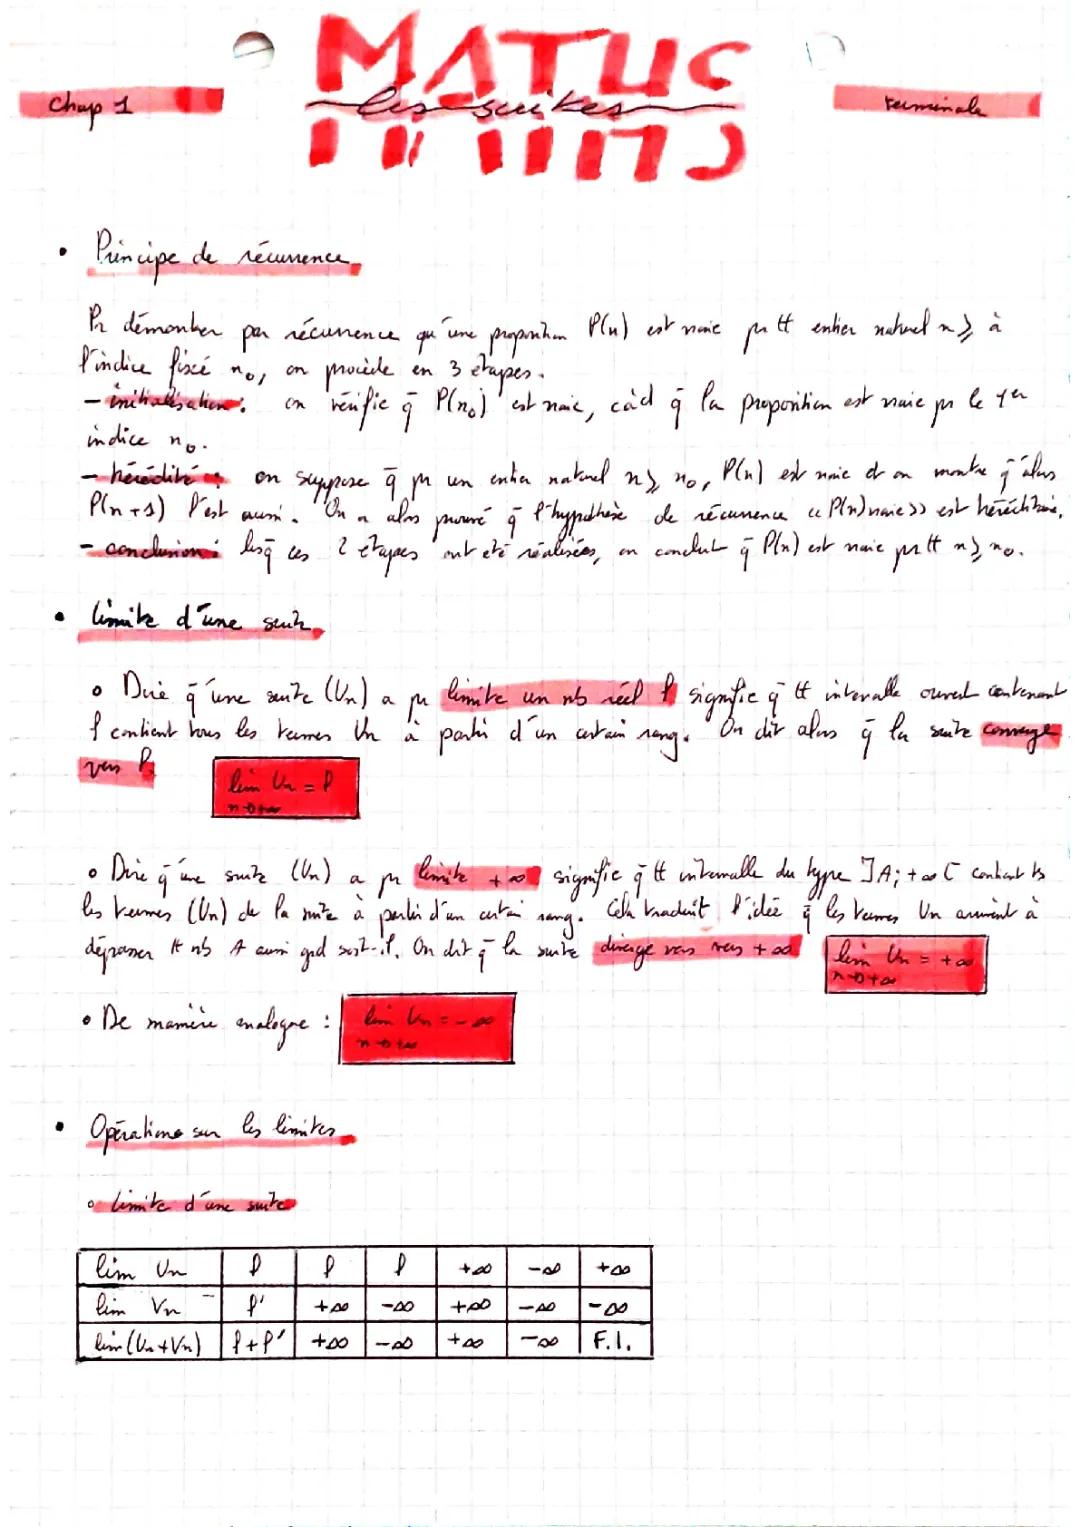 MATHS
Chap 1
les suites
terminale
• Principe de récurrence
Pr démontrer par récurrence qu'une proposition P(n) est vraie pr tt entier naturel n ≥ à
l'indice fixé n₀, on procède en 3 étapes.
- initialisation : on vérifie q̄ P(n₀) est vraie, càd q̄ la proposition est vraie pr le 1er
indice n₀.
- hérédité : on suppose q̄ pr un entier naturel n ≥ n₀, P(n) est vraie et on montre q̄'alors
P(n+1) l'est aussi. On a alors prouvé q̄ l'hypothèse de récurrence « P(n) vraie » est héréditaire.
- conclusion : lsq̄ ces 2 étapes ont été réalisées, on conclut q̄ P(n) est vraie pr tt n ≥ n₀.
• limite d'une suite
o Dire q̄'une suite (Un) a pr limite un nb réel l signifie q̄ tt intervalle ouvert contenant
l contient tous les termes Un à partir d'un certain rang. On dit alors q̄ la suite converge
vers l.
lim Un = l
n→+∞
o Dire q̄'une suite (Un) a pr limite +∞ signifie q̄ tt intervalle du type ]A; +∞[ contient ts
les termes (Un) de la suite à partir d'un certain rang. Cela traduit l'idée q̄ les termes Un arrivent à
dépasser tt nb A aussi grd soit-il. On dit q̄ la suite diverge vers vers +∞
lim Un = +∞
n→+∞
• De manière analogue : lim Un = -∞
n→+∞
• Opérations sur les limites
o limite d'une suite
lim Un | l | l | l | +∞ | -∞ | +∞
lim Vn | l' | +∞ | -∞ | +∞ | -∞ | -∞
lim (Un+Vn) | l+l' | +∞ | -∞ | +∞ | -∞ | F.I.